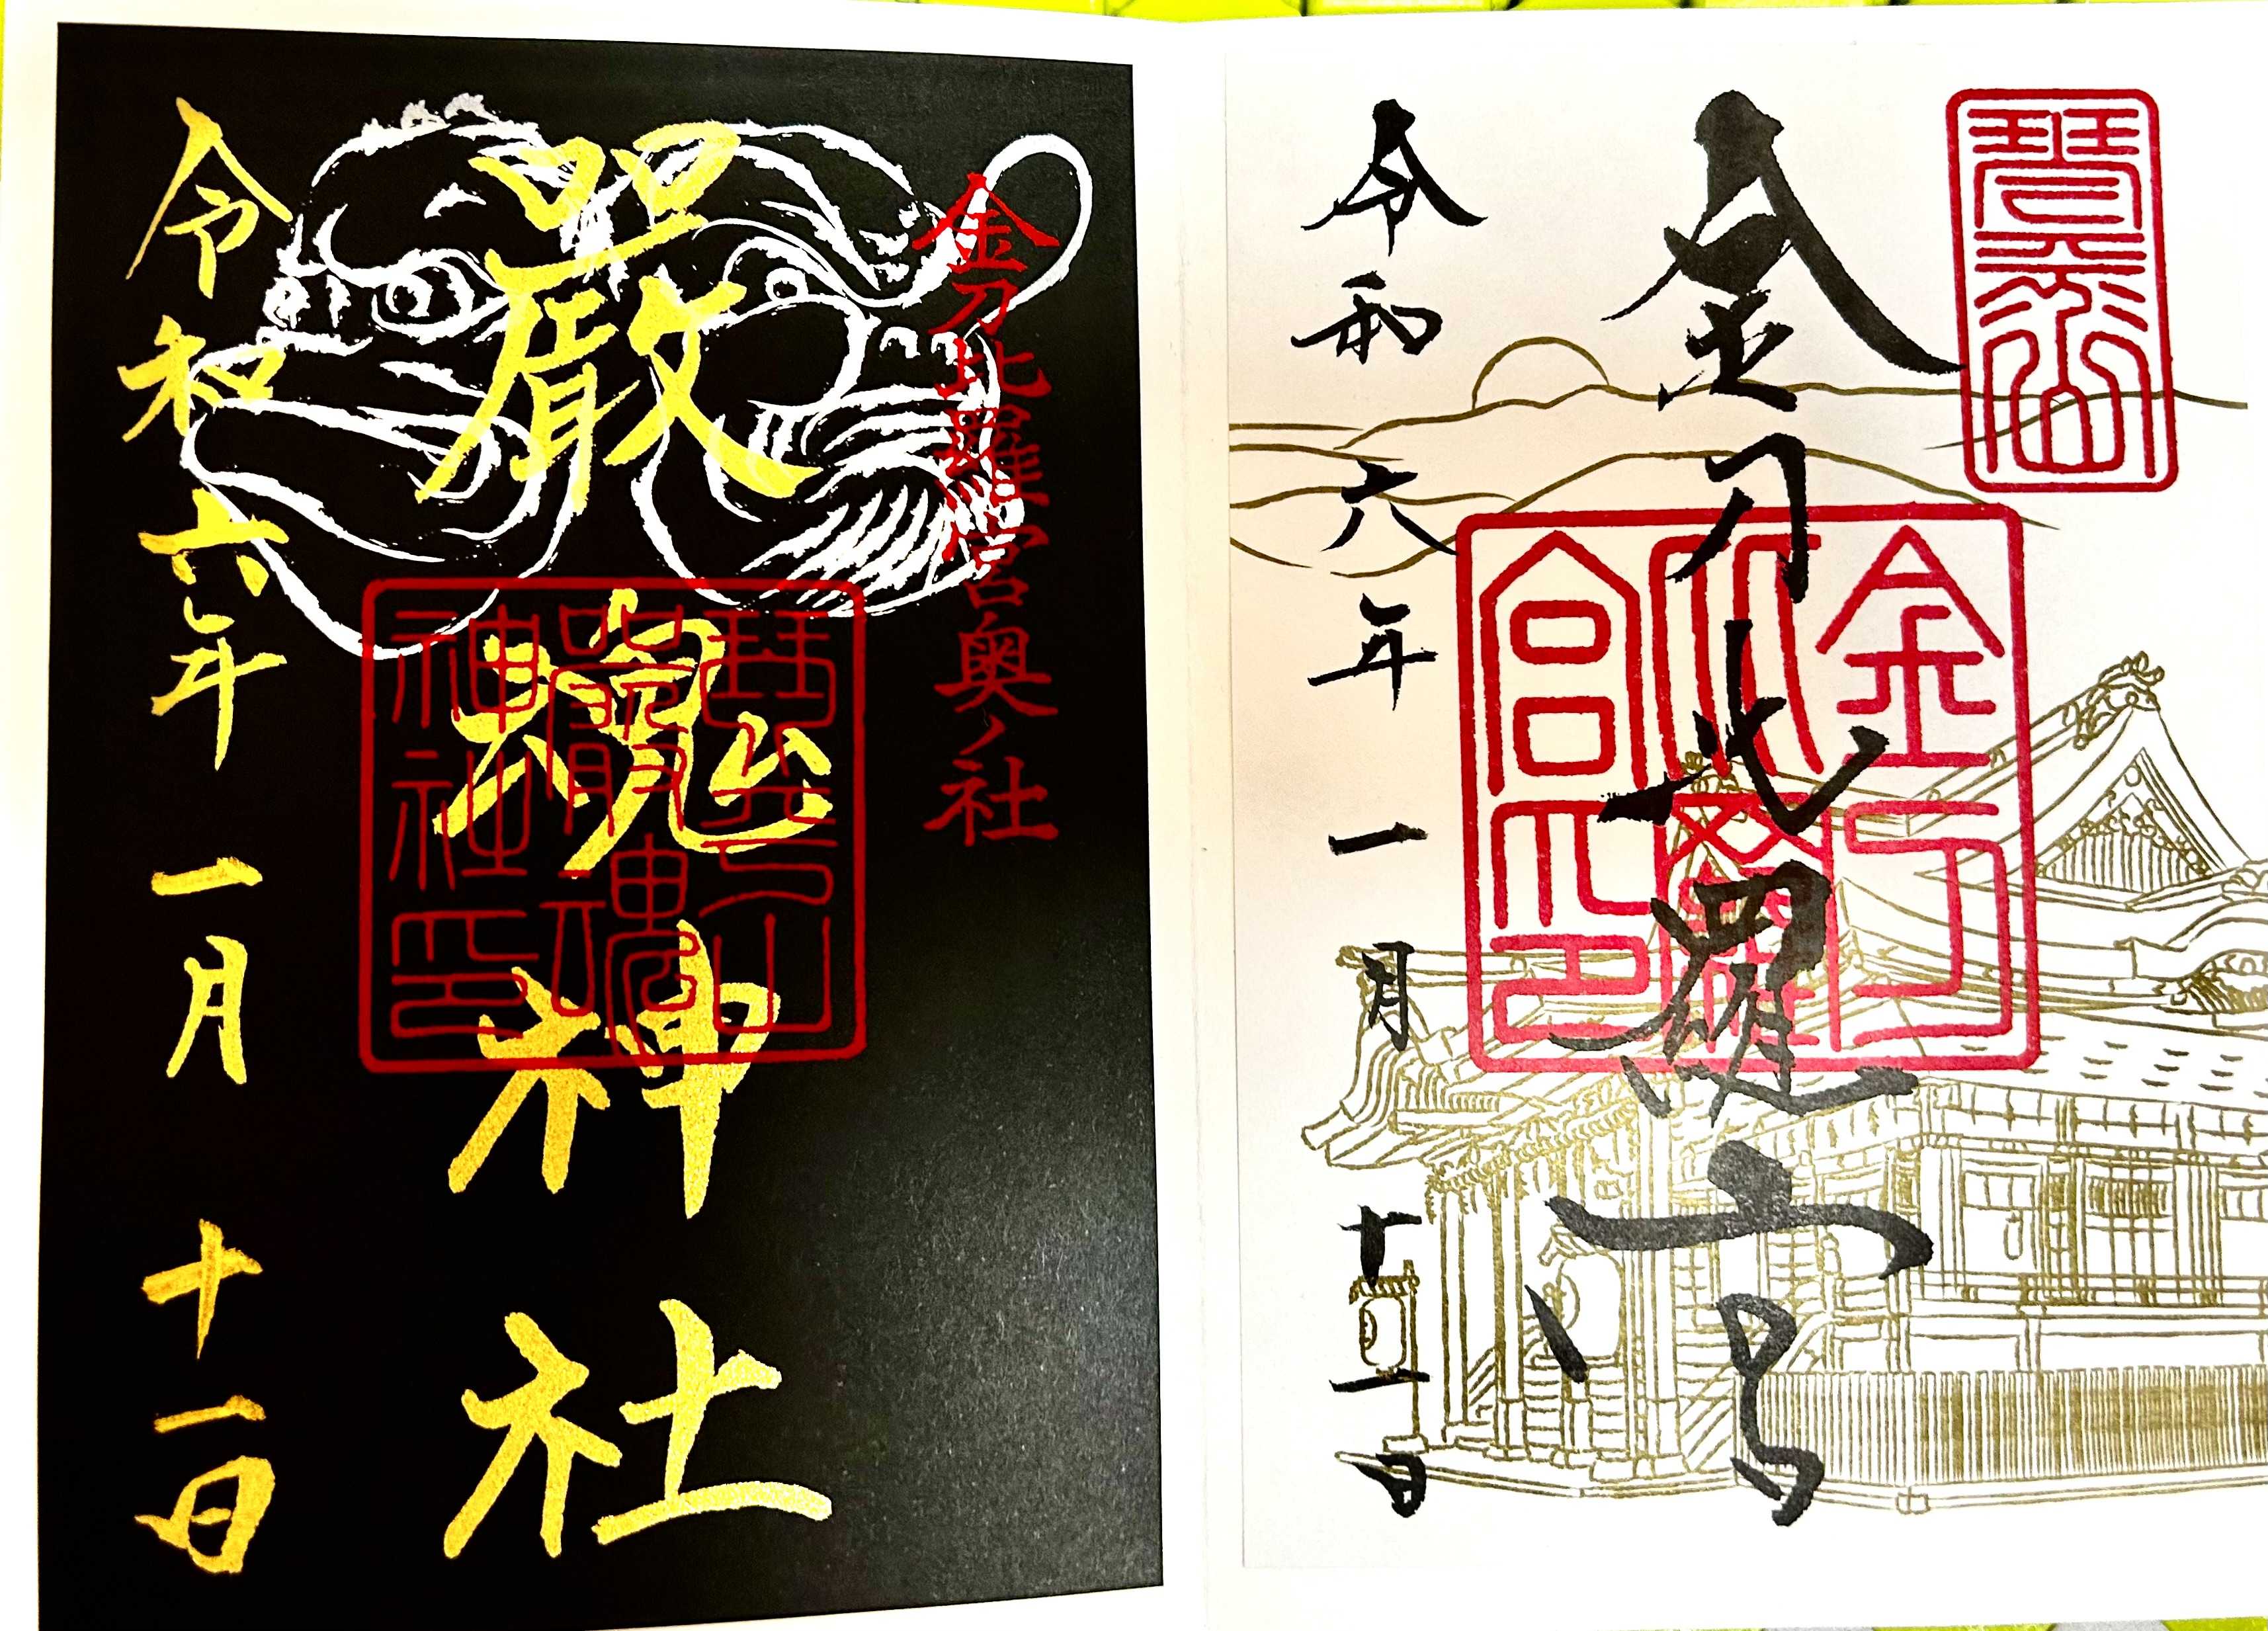 琴平山
金刀比羅宮
金刀
比羅
宮印
令和六年一月十一日
金刀比羅宮奥ノ社
嚴魂神社
琴平山
嚴魂
神社印
令和六年一月十一日